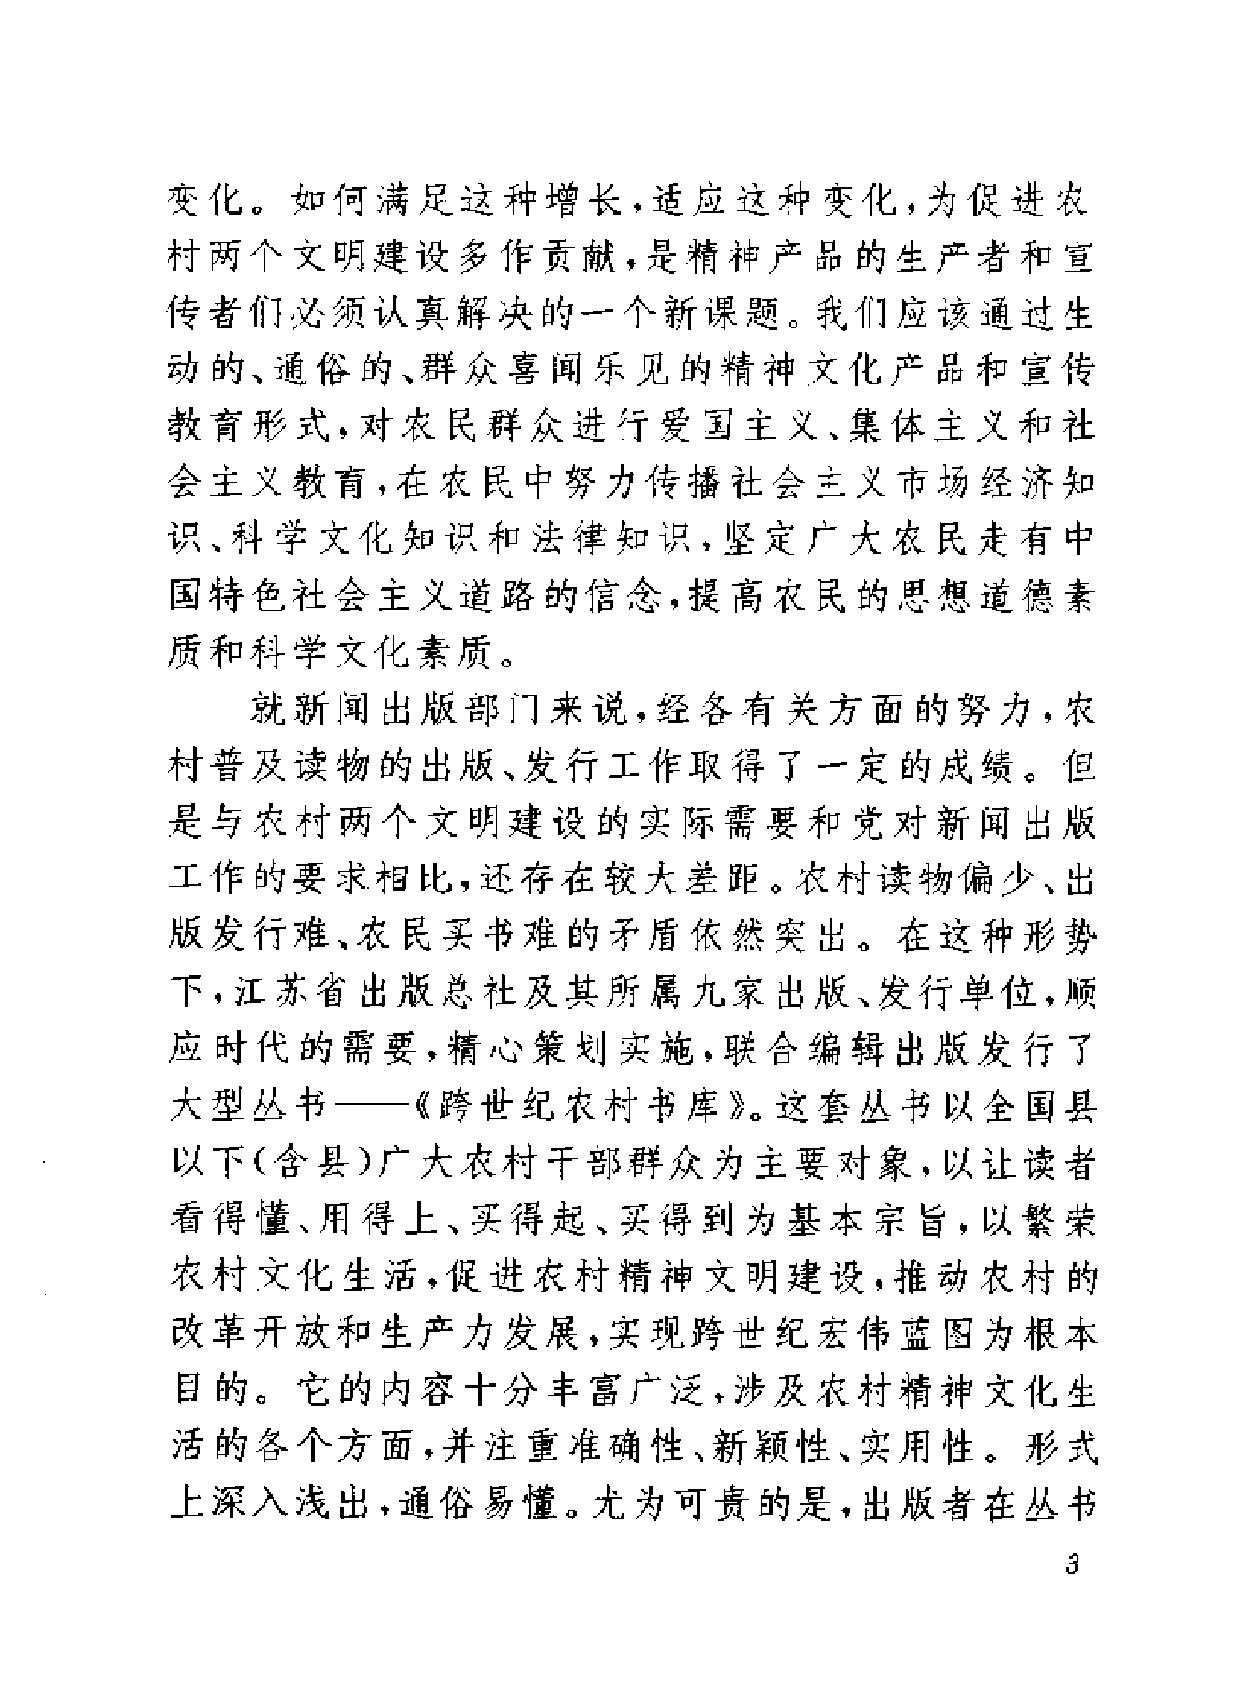 变化。如何满足这种增长,适应这种变化,为促进农
村两个文明建设多作贡献,是精神产品的生产者和宣
传者们必须认真解决的一个新课题。我们应该通过生
动的、通俗的、群众喜闻乐见的精神文化产品和宣传
教育形式,对农民群众进行爱国主义、集体主义和社
会主义教育,在农民中努力传播社会主义市场经济知
识、科学文化知识和法律知识,坚定广大农民走有中
国特色社会主义道路的信念,提高农民的思想道德素
质和科学文化素质。
就新闻出版部门来说,经各有关方面的努力,农
村普及读物的出版、发行工作取得了一定的成绩。但
是与农村两个文明建设的实际需要和党对新闻出版
工作的要求相比,还存在较大差距。农村读物偏少、出
版发行难、农民买书难的矛盾依然突出。在这种形势
下,江苏省出版总社及其所属九家出版、发行单位,顺
应时代的需要,精心策划实施,联合编辑出版发行了
大型丛书——《跨世纪农村书库》。这套丛书以全国县
以下(含县)广大农村干部群众为主要对象,以让读者
看得懂、用得上、买得起、买得到为基本宗旨,以繁荣
农村文化生活,促进农村精神文明建设,推动农村的
改革开放和生产力发展,实现跨世纪宏伟蓝图为根本
目的。它的内容十分丰富广泛,涉及农村精神文化生
活的各个方面,并注重准确性、新颖性、实用性。形式
上深入浅出,通俗易懂。尤为可贵的是,出版者在丛书
3